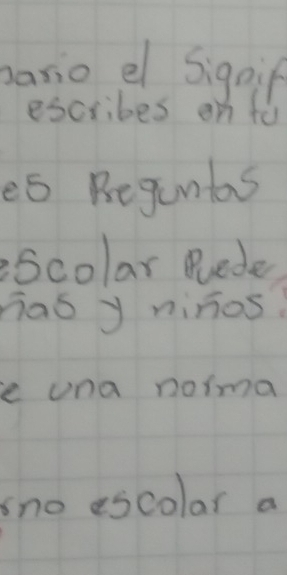 nario el Signif
escribes en tu
es Preguntas
escolar Puede
ñas y niños
e una norma
rno escolar a